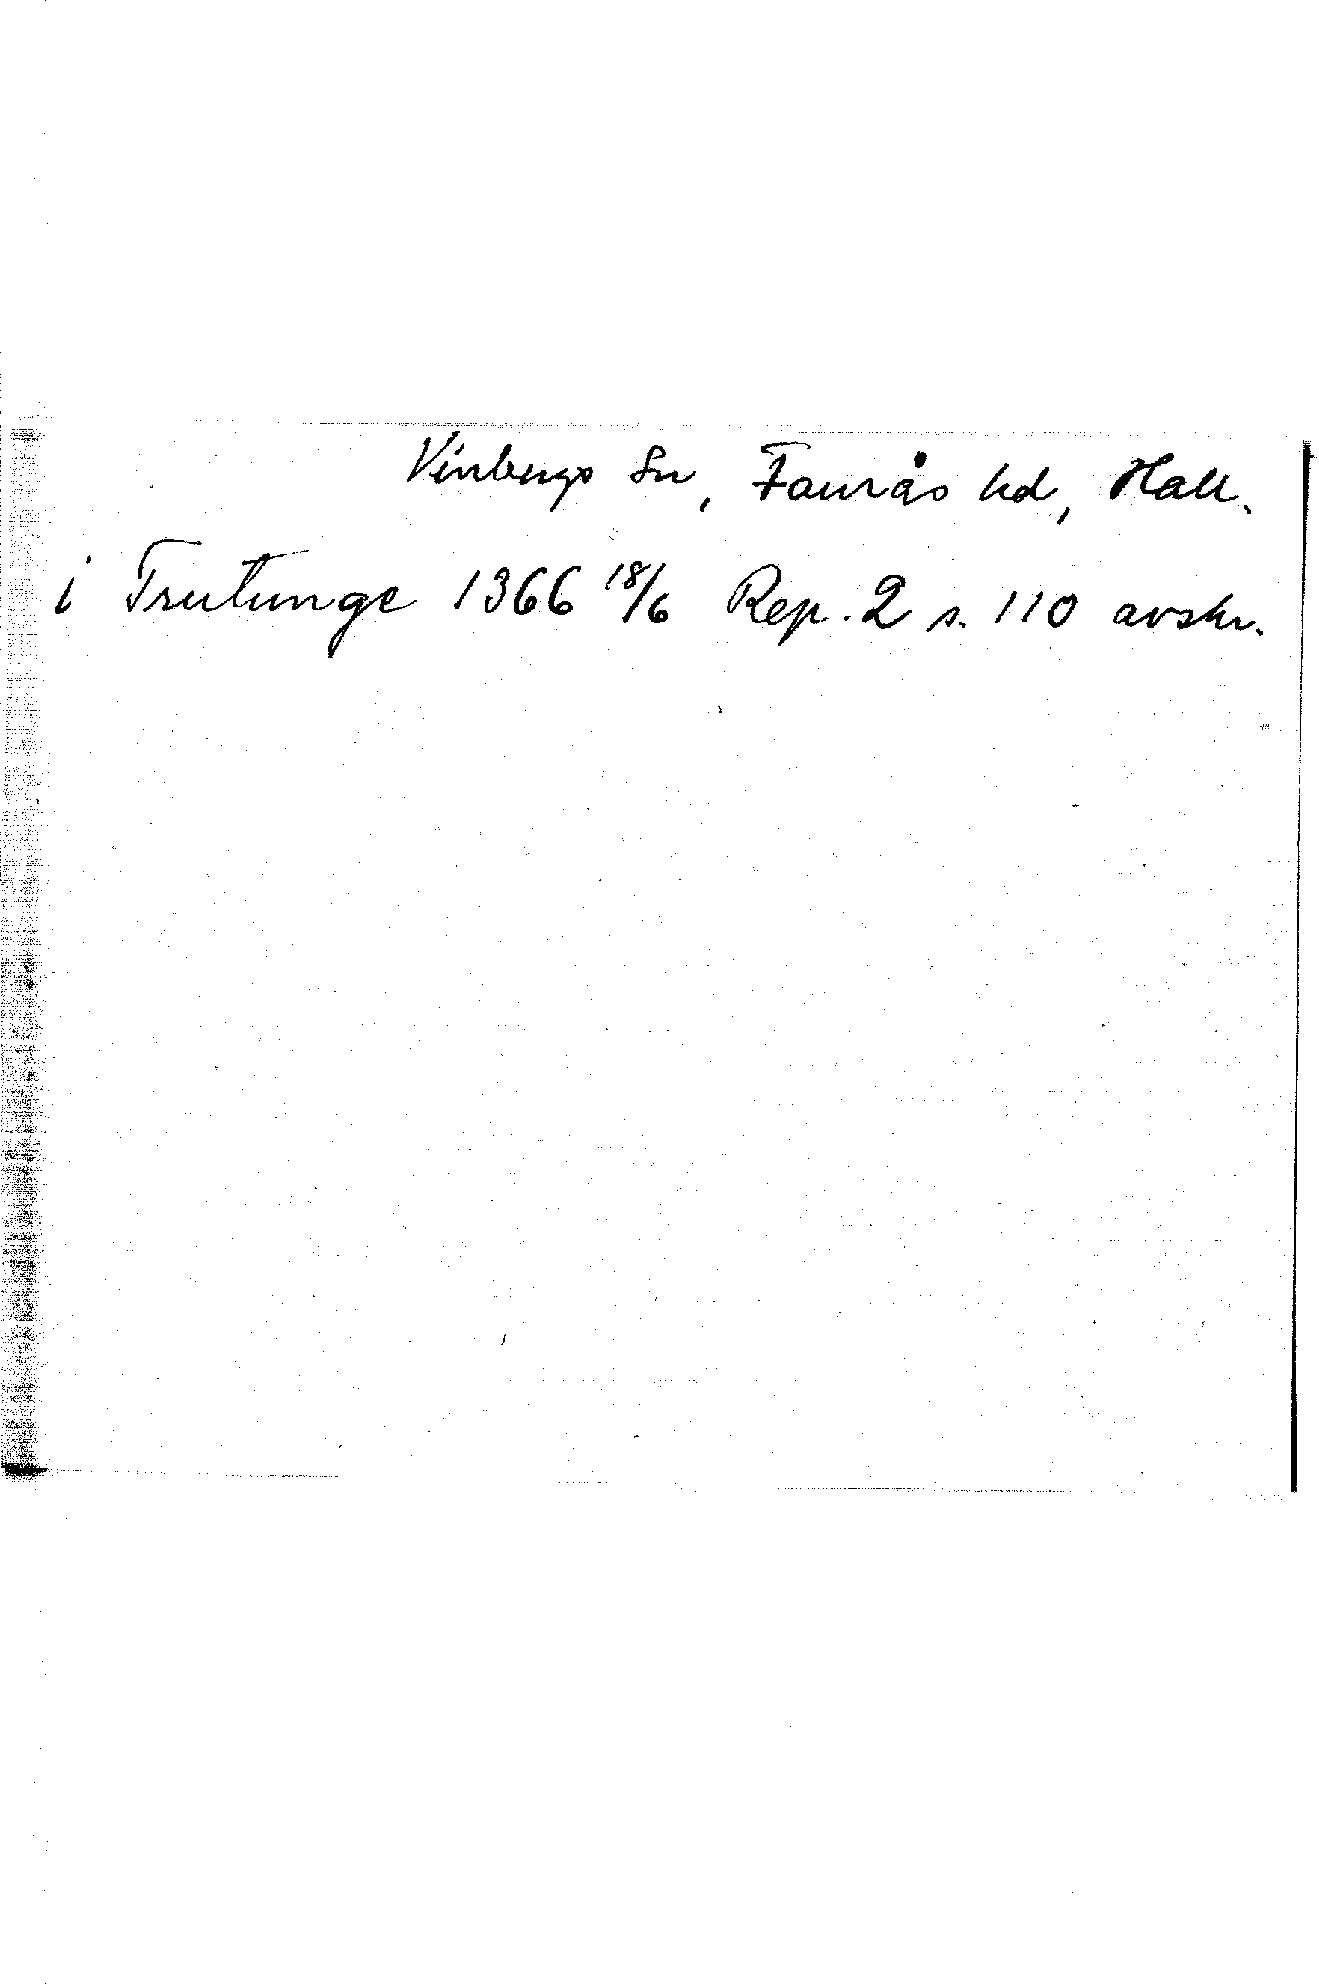 Vinbergs Sn, Faurås hd, Hall.
i Trutunge 1366 18/6 Rep. 2 s. 110 avskr.